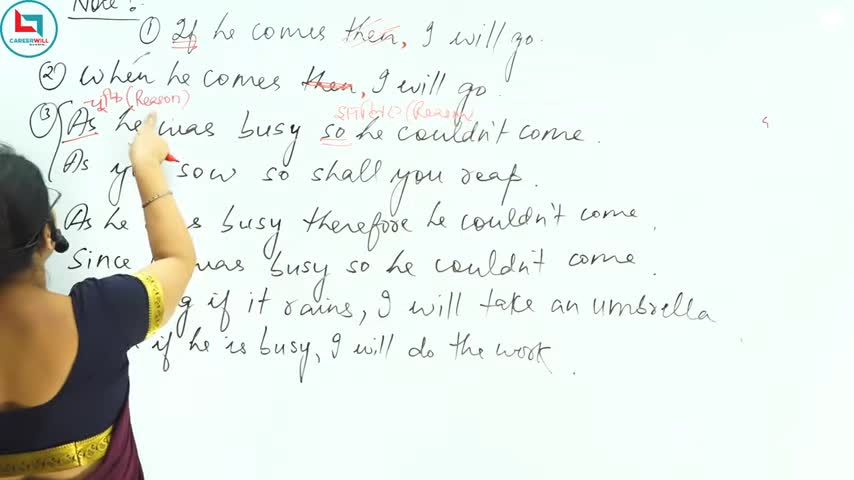 Note :-
CAREERWILL
① If he comes then, I will go.
② When he comes then, I will go
चूंकि (Reason)
इसलिए (Reason
③ As he was busy so he couldn't come.
As sow so shall you reap.
As he busy therefore he couldn't come.
Since was busy so he couldn't come.
if it rains, I will take an umbrella
if he is busy, I will do the work.